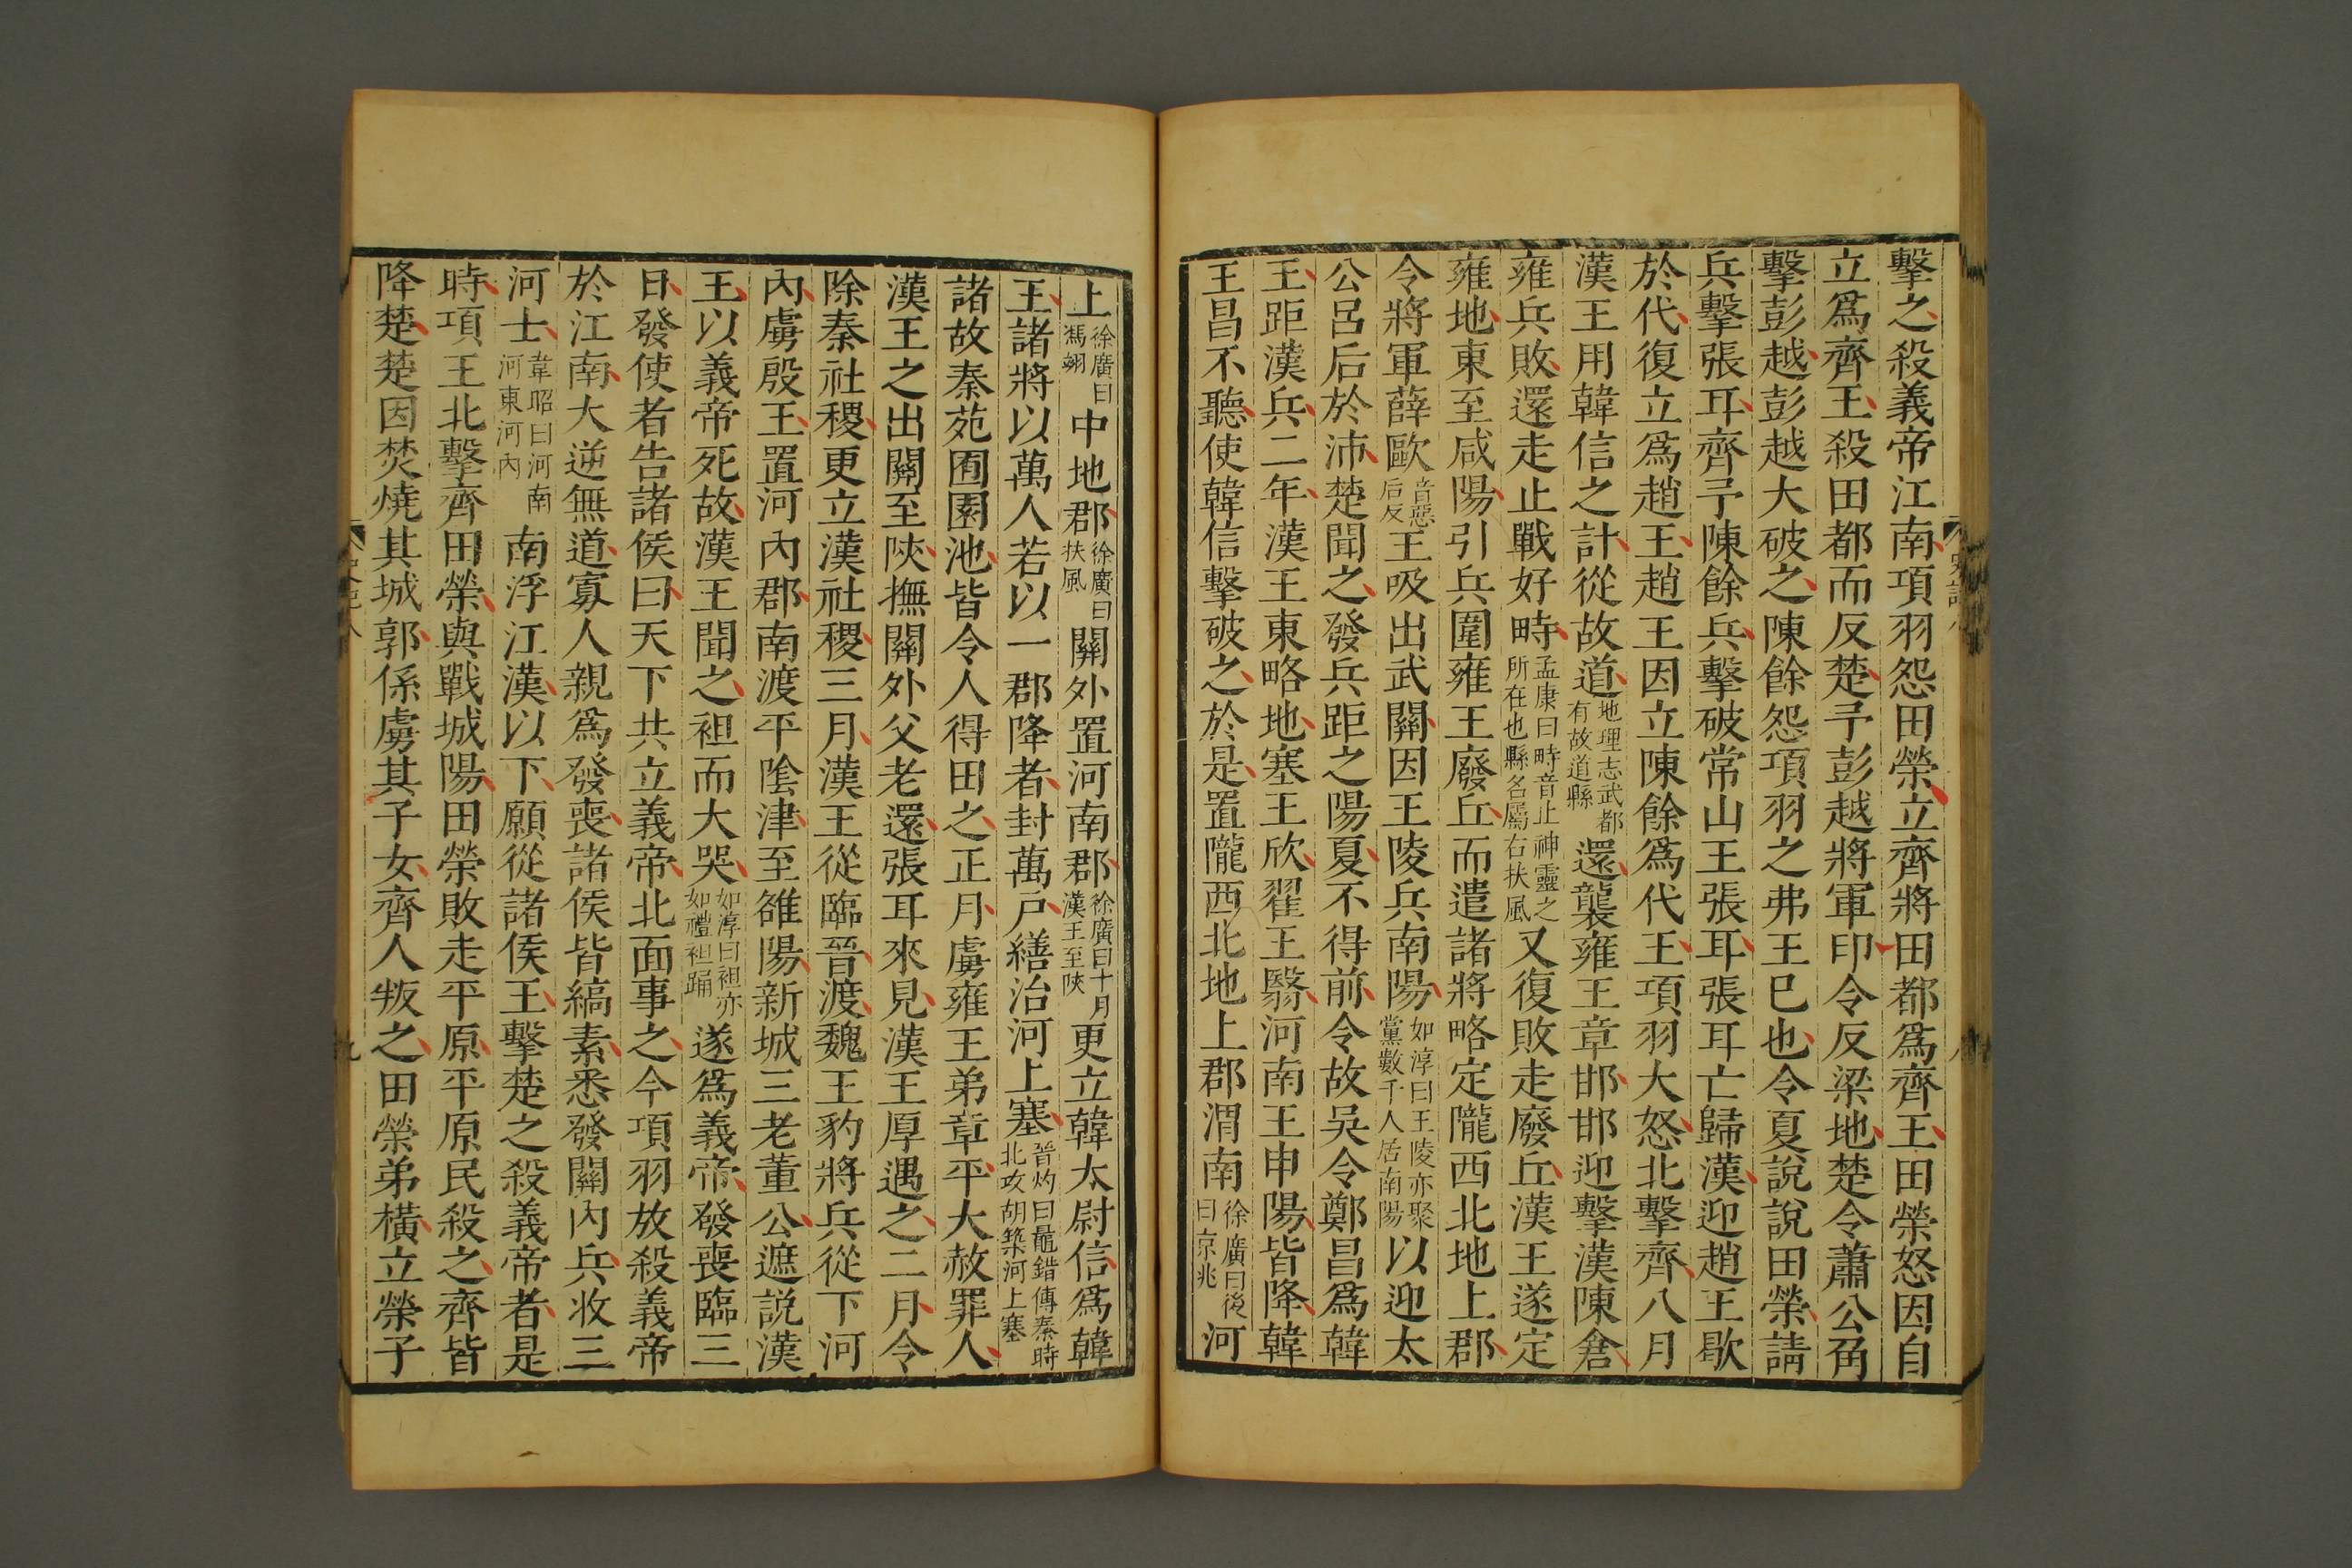 擊之殺義帝江南項羽怨田榮立齊將田都爲齊王田榮怒因自
立爲齊王殺田都而反楚予彭越將軍印令反梁地楚令蕭公角
擊彭越彭越大破之陳餘怨項羽之弗王巳也令夏說說田榮請
兵擊張耳齊予陳餘兵擊破常山王張耳張耳亡歸漢迎趙王歇
於代復立爲趙王趙王因立陳餘爲代王項羽大怒北擊齊八月
漢王用韓信之計從故道地理志武都有故道縣還襲雍王章邯邯迎擊漢陳倉
雍兵敗還走止戰好畤孟康曰畤音止神靈之所在也縣名屬右扶風又復敗走廢丘漢王遂定
雍地東至咸陽引兵圍雍王廢丘而遣諸將略定隴西北地上郡
令將軍薛歐音惡后反王吸出武關因王陵兵南陽如淳曰王陵亦聚黨數千人居南陽以迎太
公呂后於沛楚聞之發兵距之陽夏不得前令故吳令鄭昌爲韓
王距漢兵二年漢王東略地塞王欣翟王翳河南王申陽皆降韓
王昌不聽使韓信擊破之於是置隴西北地上郡渭南徐廣曰後曰京兆河
上徐廣曰馮翊中地郡徐廣曰扶風關外置河南郡徐廣曰十月漢王至陜更立韓太尉信爲韓
王諸將以萬人若以一郡降者封萬戸繕治河上塞晉灼曰鼂錯傳秦時北攻胡築河上塞
諸故秦苑囿園池皆令人得田之正月虜雍王弟章平大赦罪人
漢王之出關至陜撫關外父老還張耳來見漢王厚遇之二月令
除秦社稷更立漢社稷三月漢王從臨晉渡魏王豹將兵從下河
內虜殷王置河內郡南渡平陰津至雒陽新城三老董公遮説漢
王以義帝死故漢王聞之袒而大哭如淳曰袒亦如禮袒踊遂爲義帝發喪臨三
日發使者告諸侯曰天下共立義帝北面事之今項羽放殺義帝
於江南大逆無道寡人親爲發喪諸侯皆縞素悉發關內兵收三
河士韋昭曰河南河東河內南浮江漢以下願從諸侯王擊楚之殺義帝者是
時項王北擊齊田榮與戰城陽田榮敗走平原平原民殺之齊皆
降楚楚因焚燒其城郭係虜其子女齊人叛之田榮弟橫立榮子